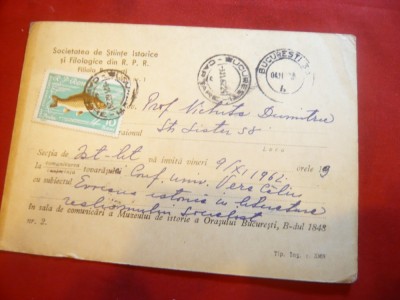 Societatea de Științe Istorice
și Filologice din R. P. R.
Filiala
BUCUREȘTI
CARTARE
BUCUREȘTI
Prof Dumitru
raionul
Str. Lister 58
Loco
Secția de Ist-lit vă invită vineri 9/XI 1962 orele
La comunicarea tovarășului Conf. univ. Vera Călin
cu subiectul Evocarea istoriei in literatura
realismului socialist
In sala de comunicări a Muzeului de istorie a Orașului București, B-dul 1848
nr. 2.
Tip. Ing.